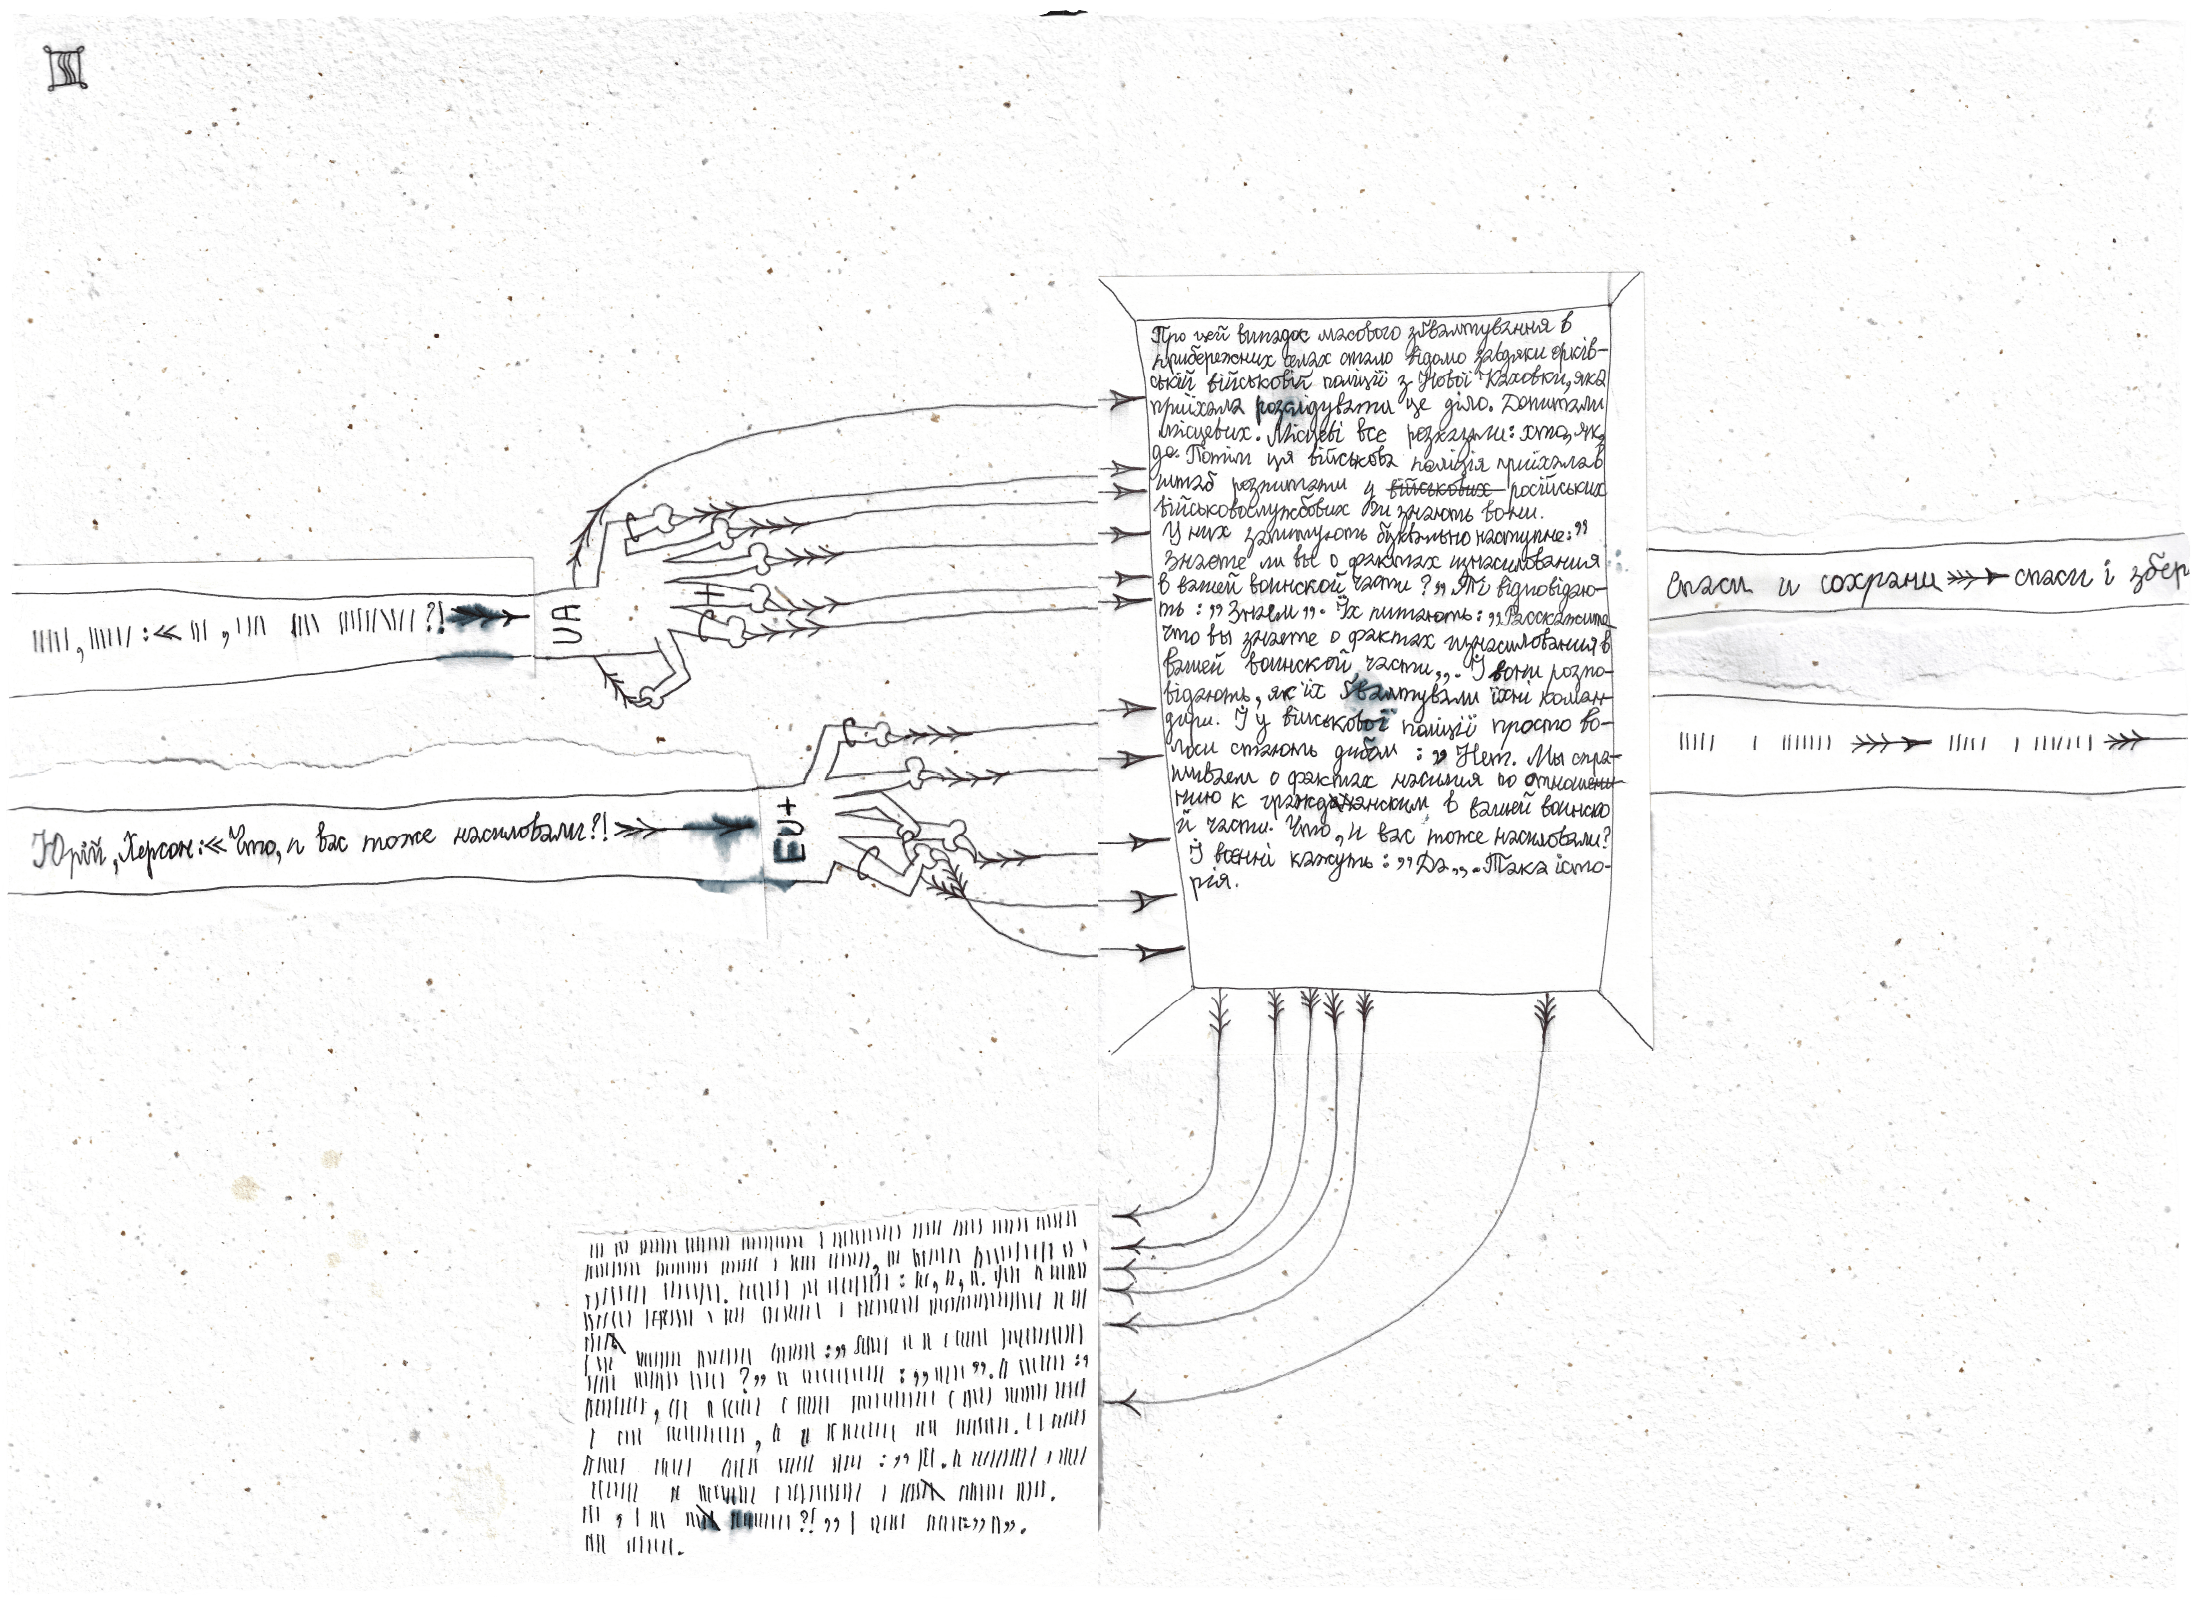 UA
?!
Юрій, Херсон: «Что, и вас тоже насиловали?!
EU+
Про цей випадок масового зґвалтування в
прибережних селах стало відомо завдяки орків-
ській військовій поліції з Нової Каховки, яка
приїхала розслідувати це діло. Допитали
місцевих. Місцеві все розказали: хто, як,
де. Потім ця військова поліція приїхала в
штаб розпитати у військових російських
військовослужбових чи знають вони.
У них запитують буквально наступне: „
Знаете ли вы о фактах изнасилования
в вашей воинской части?„ Ті відповідаю-
ть: „Знаем„. Їх питають: „Расскажите
что вы знаете о фактах изнасилования в
вашей воинской части„. І вони розпо-
відають, як їх зґвалтували їхні коман-
дири. І у військової поліції просто во-
лоси стають дибом: „Нет. Мы спра-
шиваем о фактах насилия по отношен
нию к гражданским в вашей воинско
й части. Что, и вас тоже насиловали?
І воєнні кажуть: „Да„. Така істо-
рія.
спаси и сохрани спаси і збер